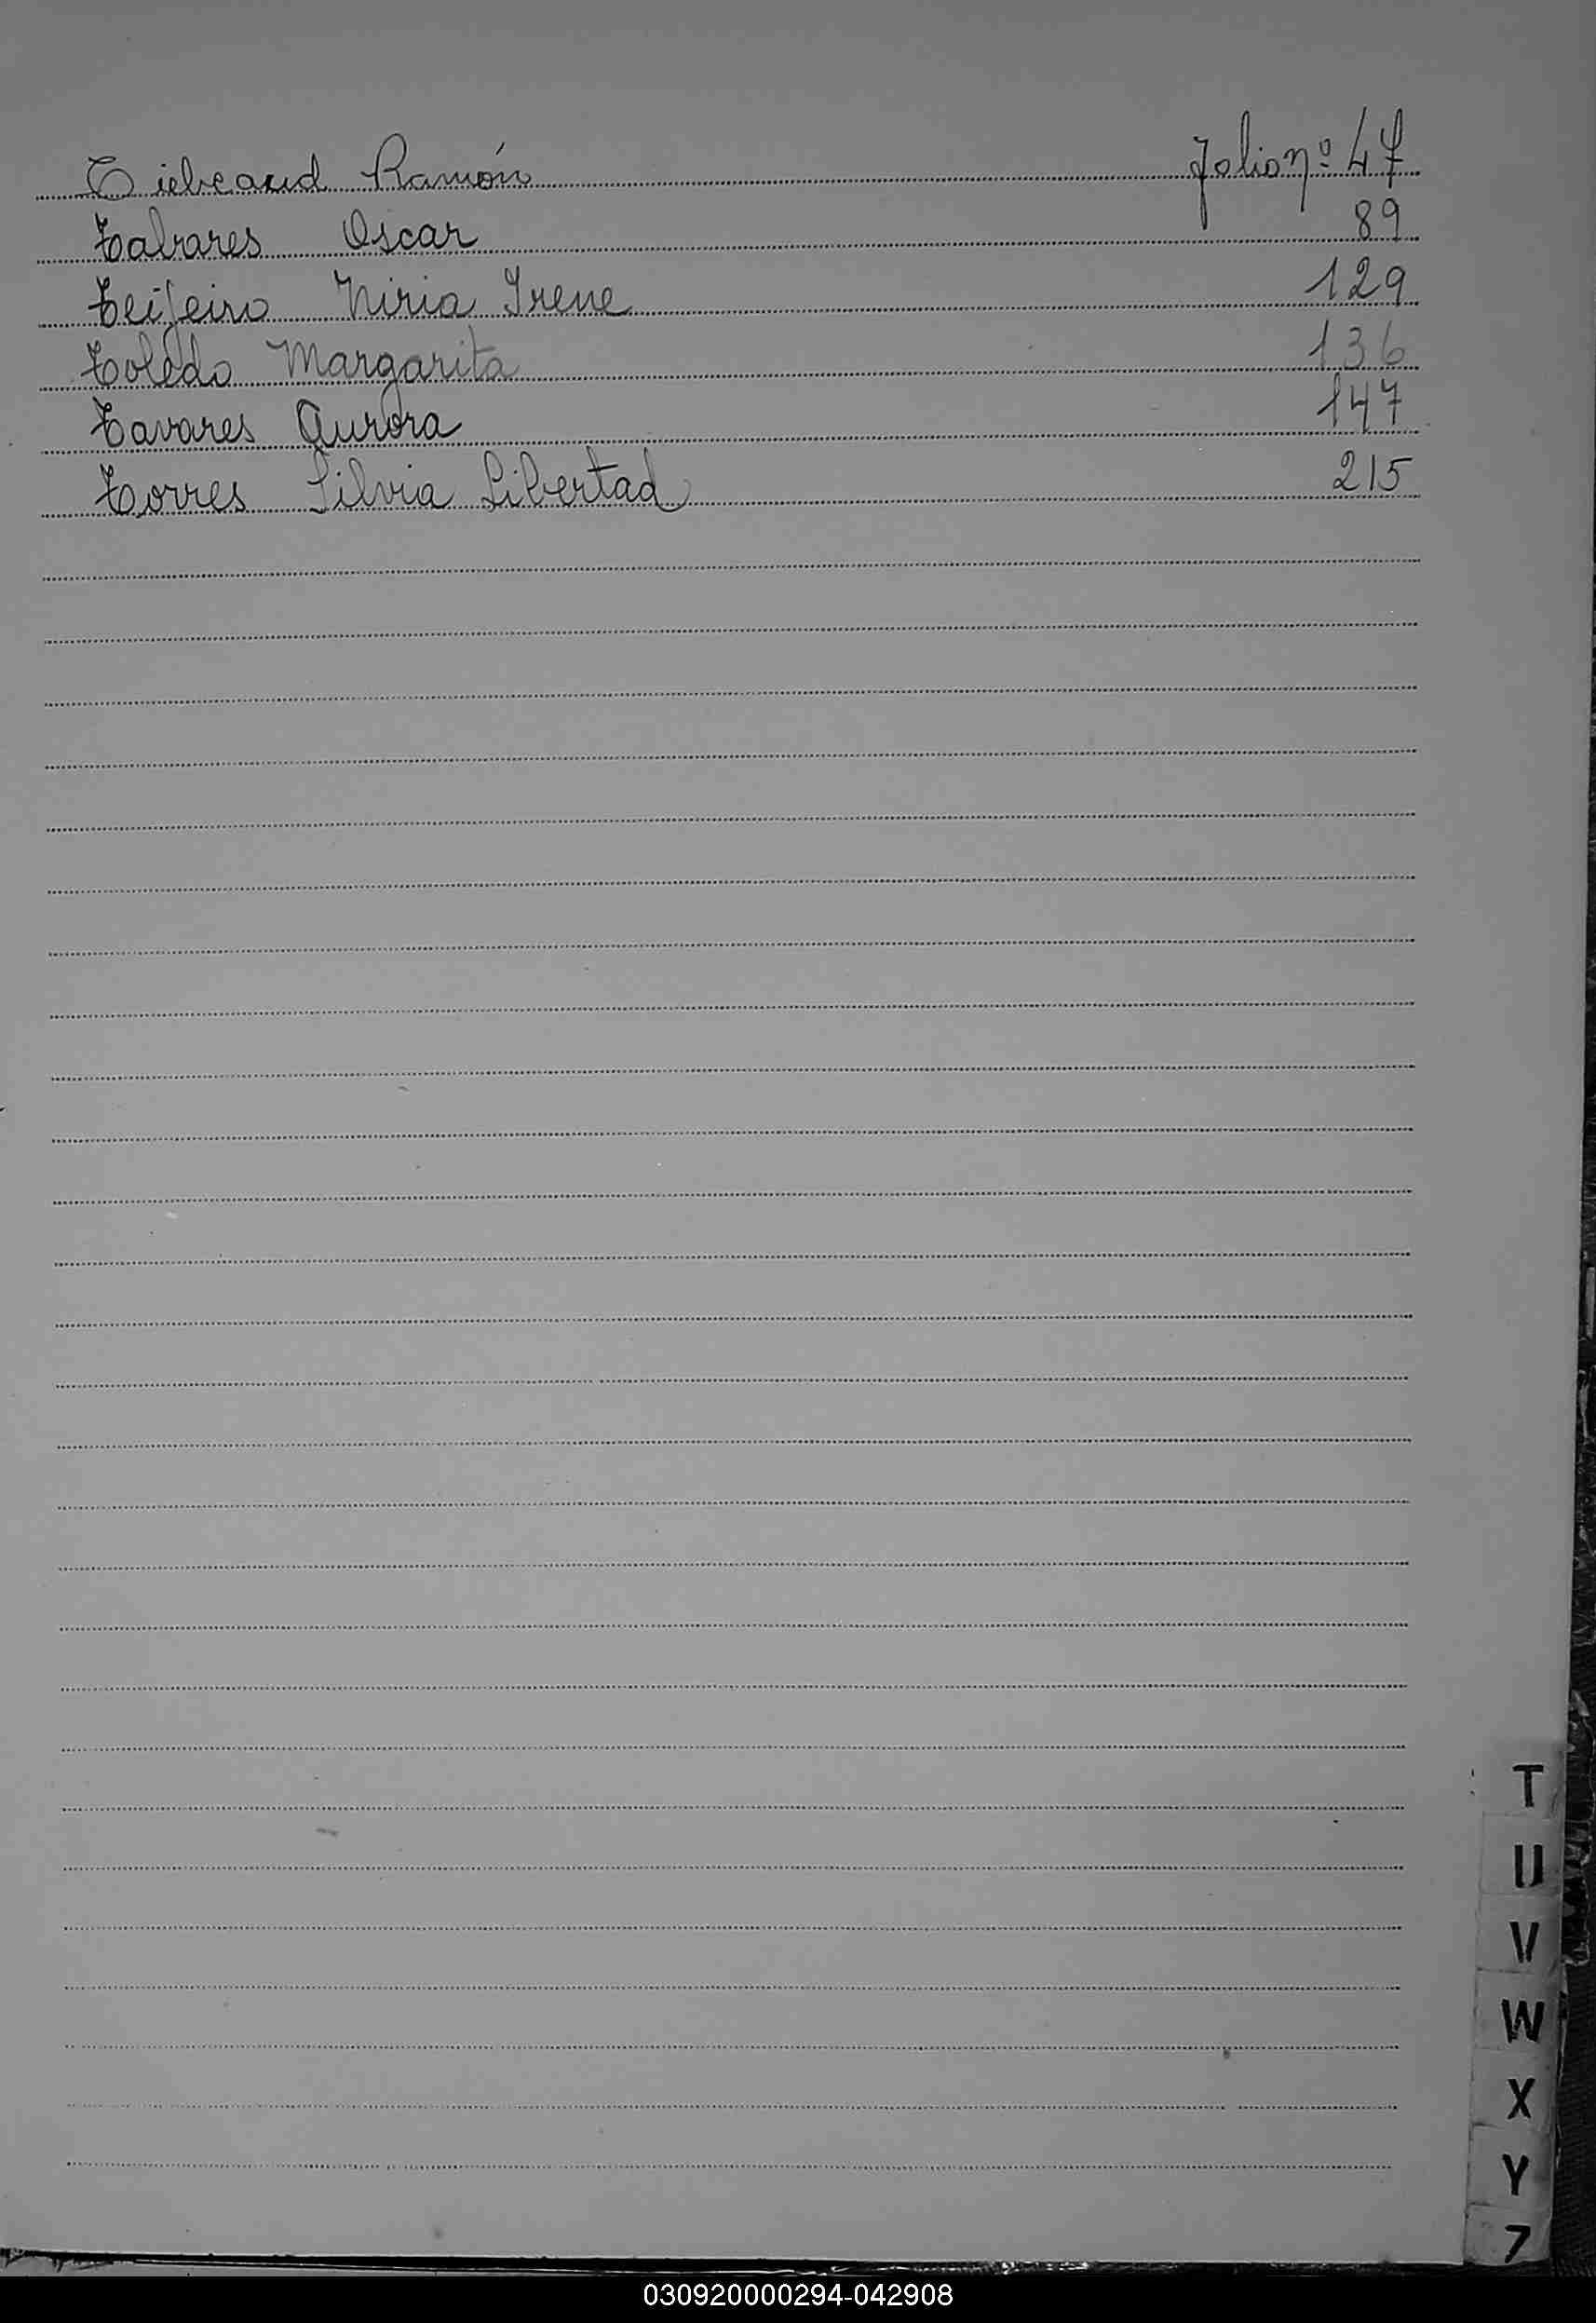 Tiebeaud Ramón Folio nº 47
Tabares Oscar 89
Teijeiro Niria Irene 129
Toledo Margarita 136
Tavares Aurora 147
Torres Silvia Libertad 215
T
U
V
W
X
Y
Z
030920000294-042908